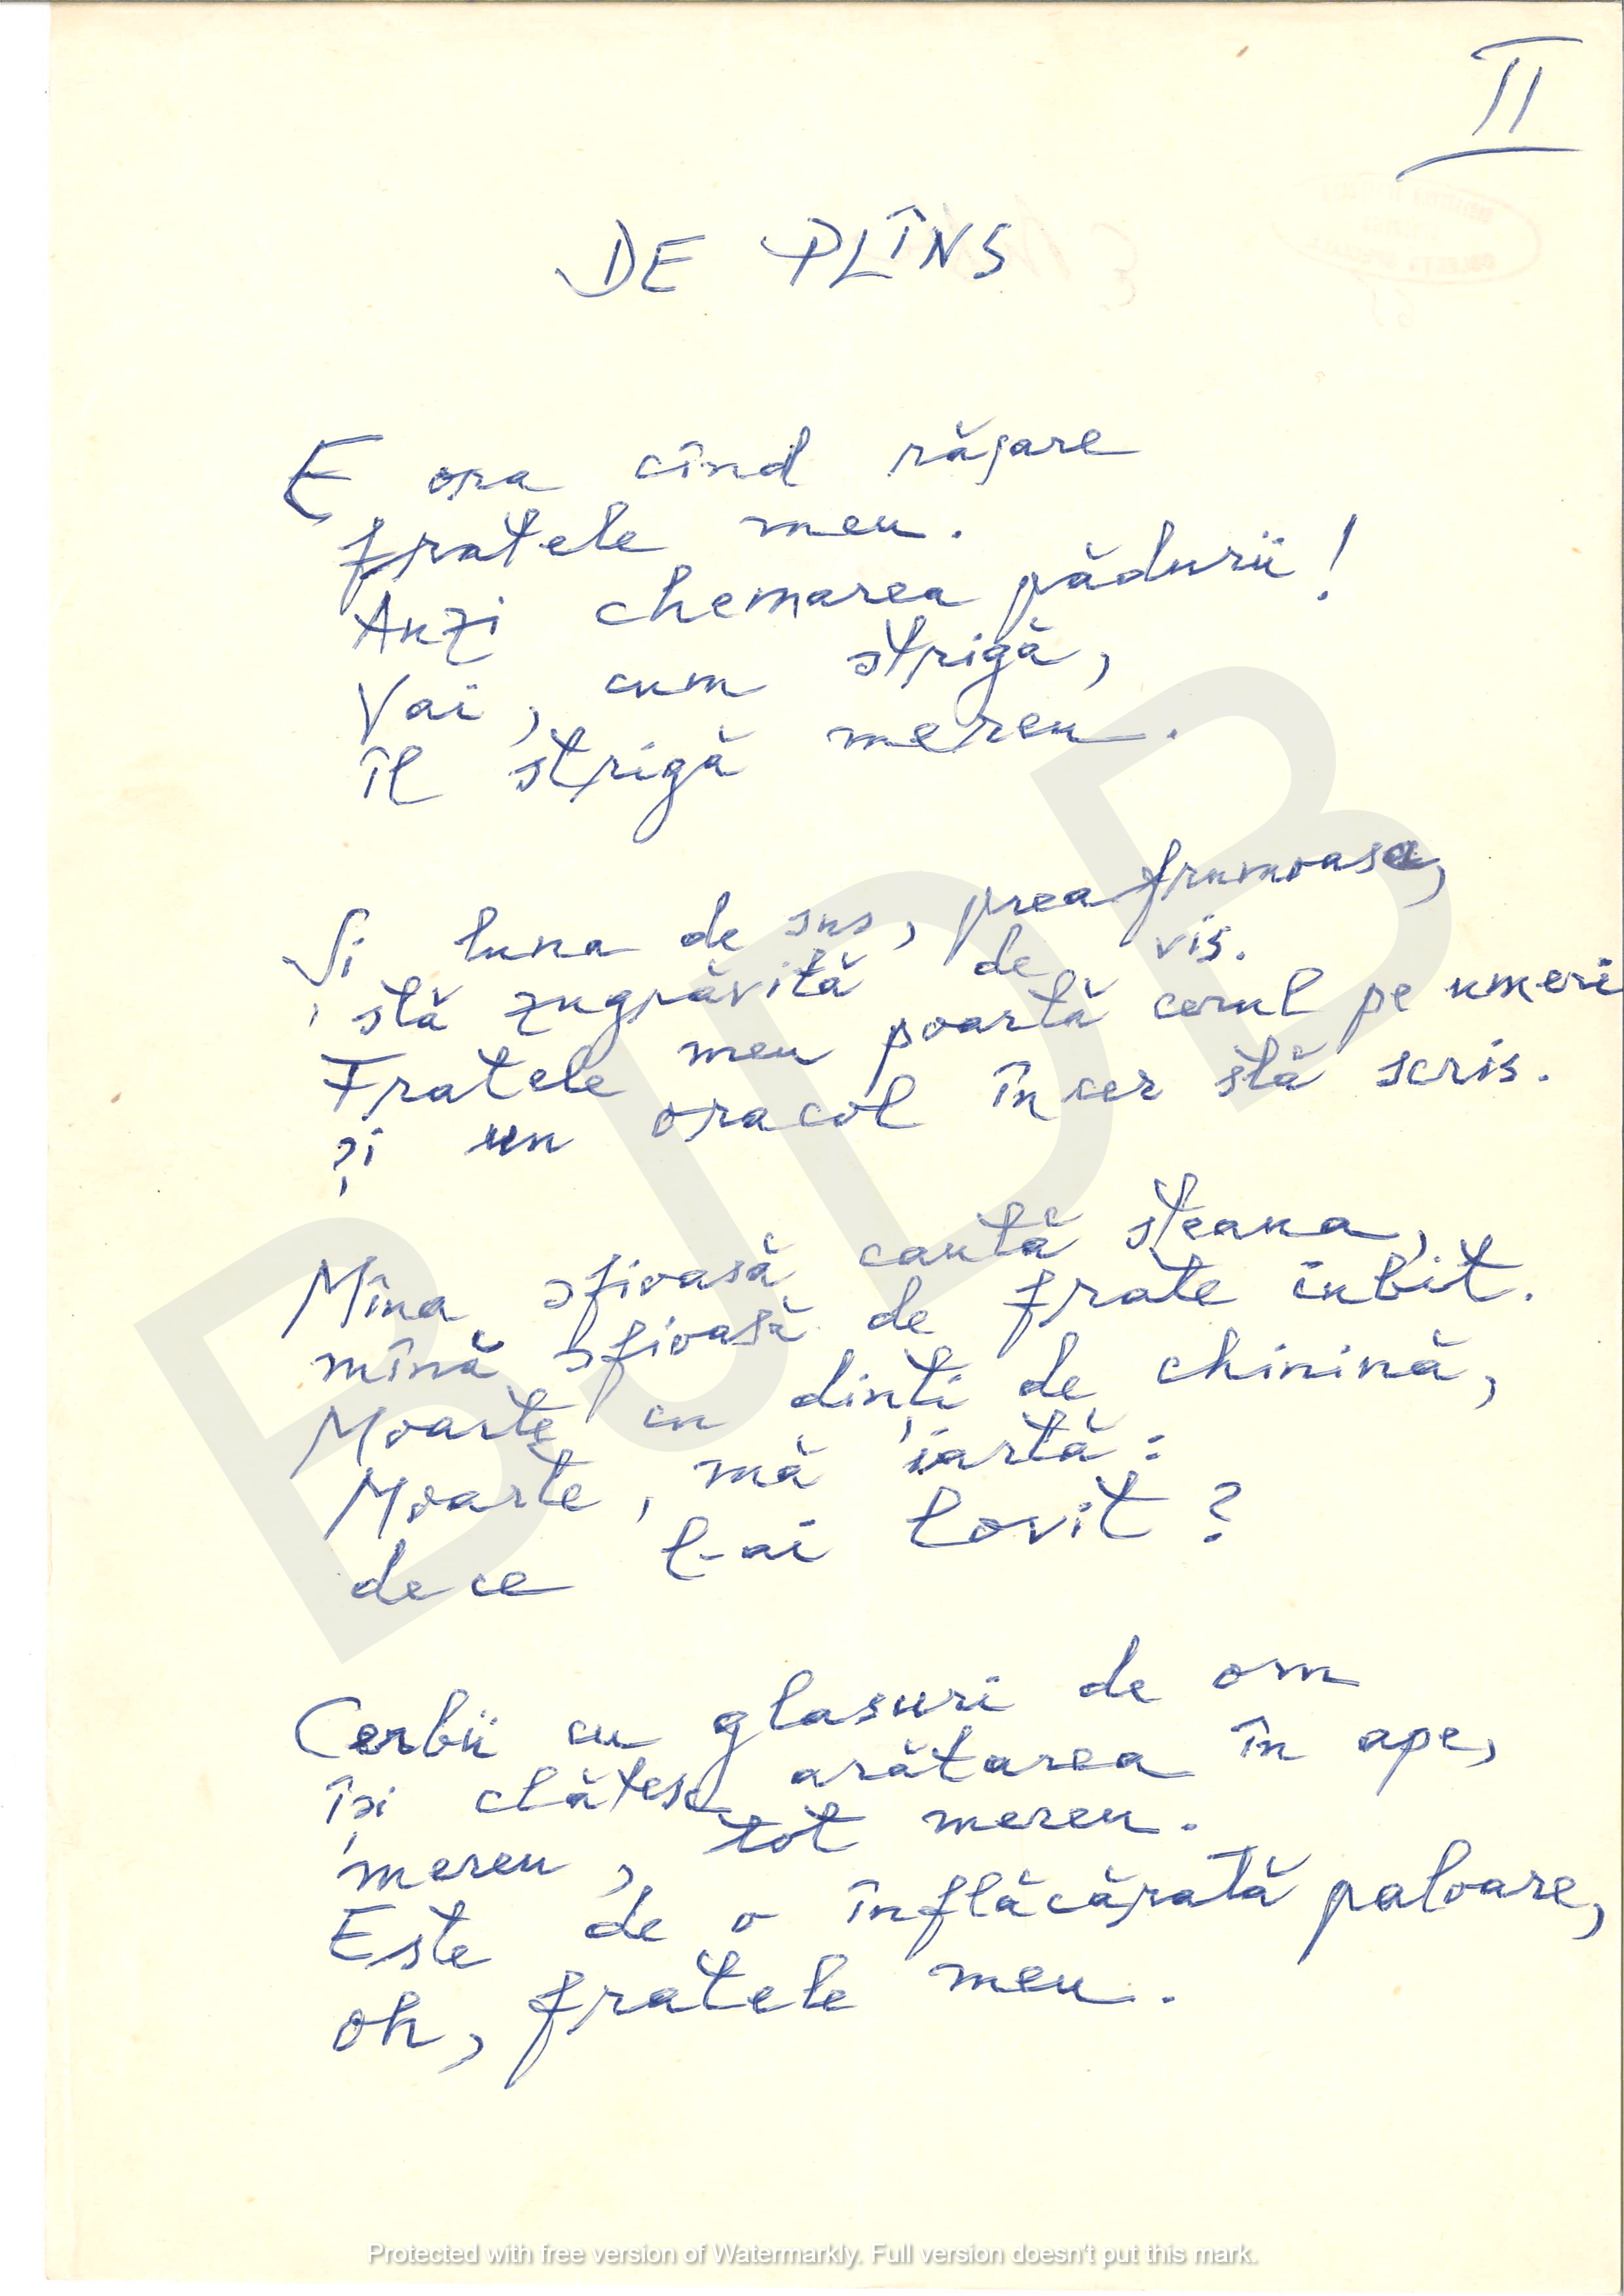 II
DE PLÎNS
E ora cînd răsare
fratele meu.
Auzi chemarea pădurii!
Vai, cum strigă,
îl strigă mereu.
Și luna de sus, prea frumoasa,
stă zugrăvită de vis.
Fratele meu poartă cerul pe umeri
și un oracol în cer stă scris.
Mîna sfioasă caută steaua,
mînă sfioasă de frate iubit.
Moarte cu dinți de chinină,
Moarte, mă iartă:
de ce l-ai lovit?
Cerbii cu glasuri de om
își clătesc arătarea în ape,
mereu, tot mereu.
Este de o înflăcărată paloare,
oh, fratele meu.
BJDB
Protected with free version of Watermarkly. Full version doesn't put this mark.